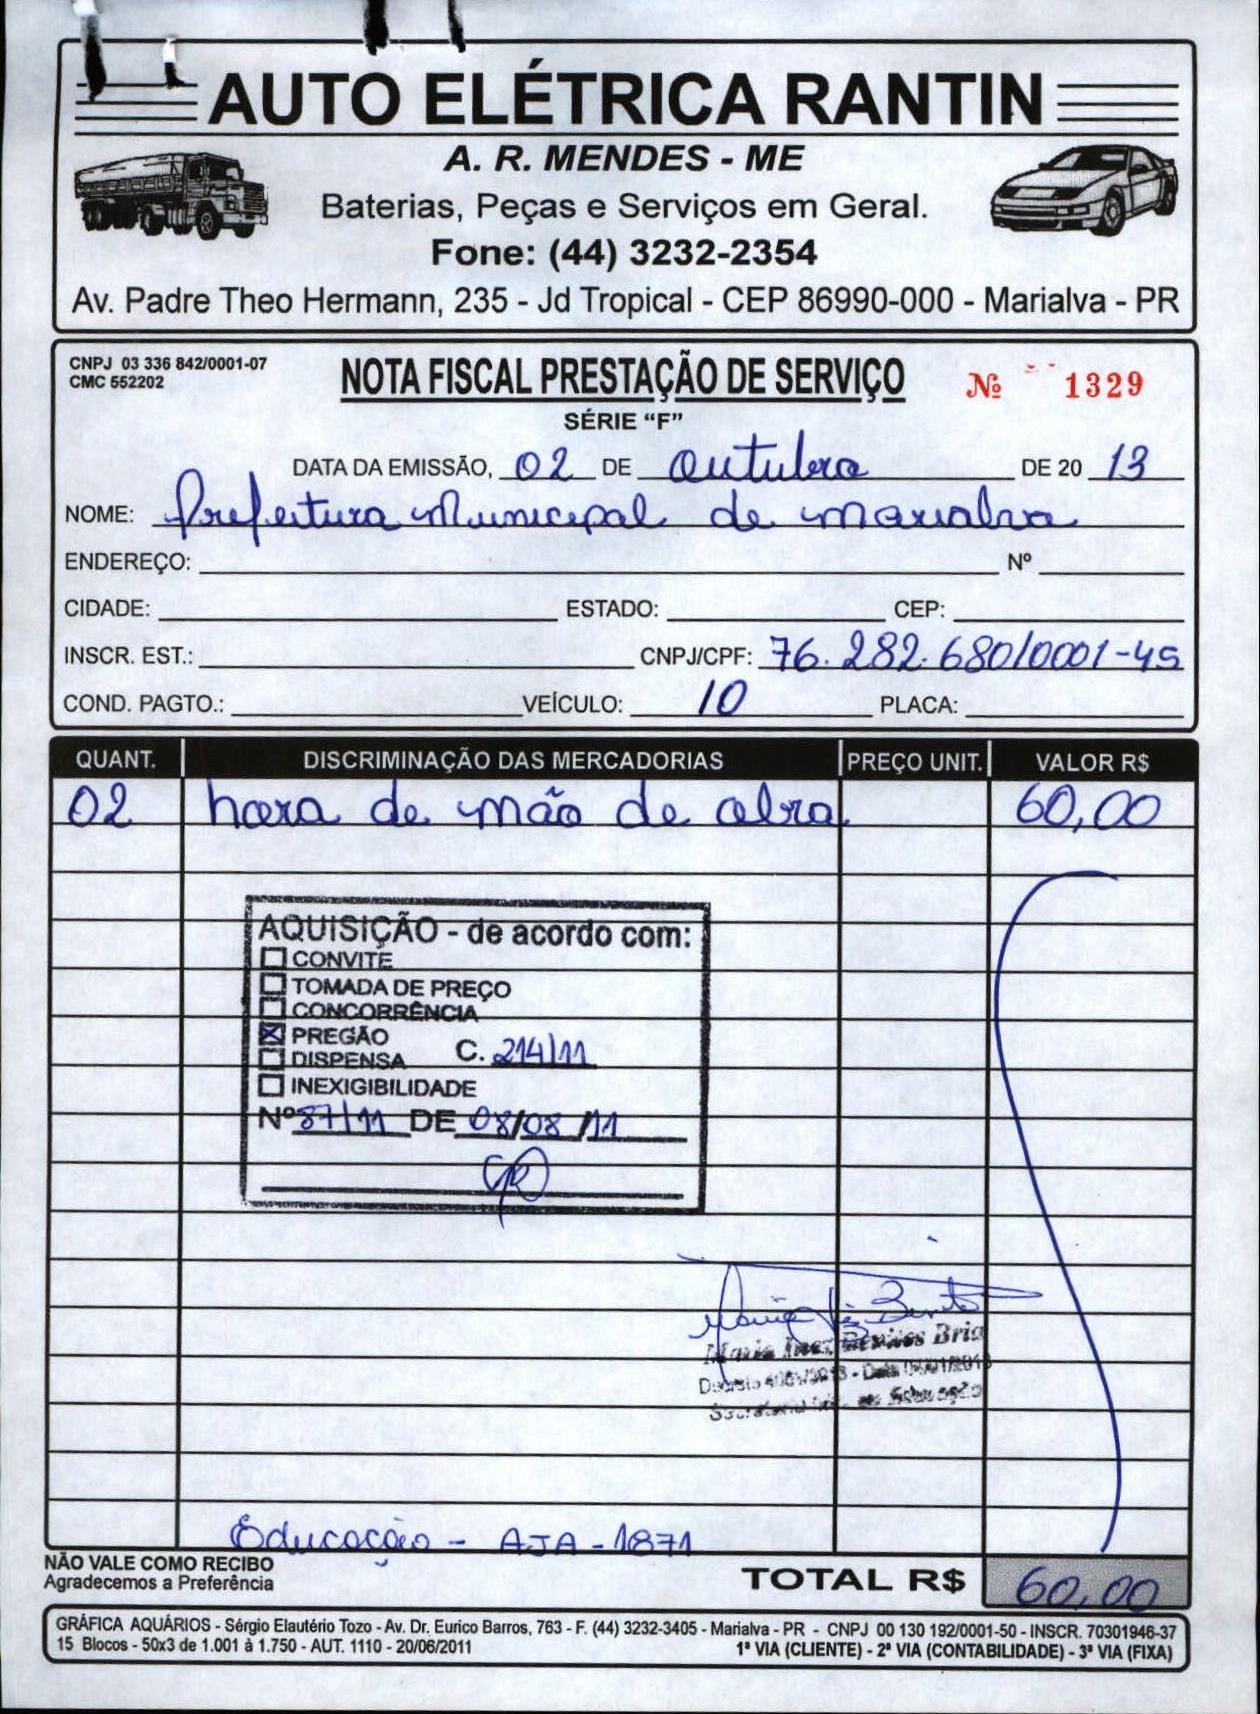 AUTO ELÉTRICA RANTIN
A. R. MENDES - ME
Baterias, Peças e Serviços em Geral.
Fone: (44) 3232-2354
Av. Padre Theo Hermann, 235 - Jd Tropical - CEP 86990-000 - Marialva - PR
CNPJ 03 336 842/0001-07
CMC 552202
NOTA FISCAL PRESTAÇÃO DE SERVIÇO
Nº 1329
SÉRIE “F”
DATA DA EMISSÃO, 02 DE Outubro DE 20 13
NOME: Prefeitura Municipal de Marialva
ENDEREÇO: Nº
CIDADE: ESTADO: CEP:
INSCR. EST.: CNPJ/CPF: 76.282.680/0001-45
COND. PAGTO.: VEÍCULO: 10 PLACA:
QUANT. DISCRIMINAÇÃO DAS MERCADORIAS PREÇO UNIT. VALOR R$
02 hora de mão de obra 60,00
AQUISIÇÃO - de acordo com:
CONVITE
TOMADA DE PREÇO
CONCORRÊNCIA
PREGÃO
DISPENSA C. 214/11
INEXIGIBILIDADE
Nº 87/11 DE 08/08/11
Maria Inez Benites Bria
Educação - AJA - 1871
NÃO VALE COMO RECIBO
Agradecemos a Preferência
TOTAL R$ 60,00
GRÁFICA AQUÁRIOS - Sérgio Elautério Tozo - Av. Dr. Eurico Barros, 763 - F. (44) 3232-3405 - Marialva - PR - CNPJ 00 130 192/0001-50 - INSCR. 70301946-37
15 Blocos - 50x3 de 1.001 à 1.750 - AUT. 1110 - 20/06/2011 1ª VIA (CLIENTE) - 2ª VIA (CONTABILIDADE) - 3ª VIA (FIXA)